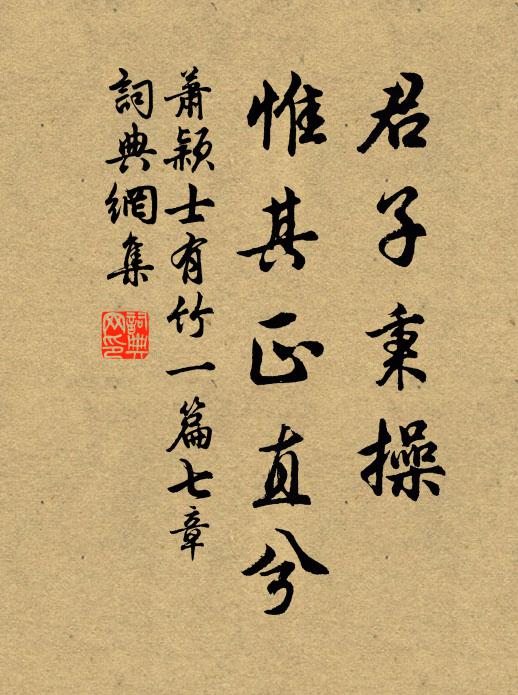 君子秉操
惟其正直兮
蕭穎士有竹一篇七章
詞典網集
詞典
网印